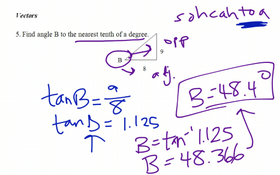 sohcahtoa
Vectors
5. Find angle B to the nearest tenth of a degree.
opp
B
9
8
adj.
tanB = 9/8
tanB = 1.125
B = 48.4°
B = tan⁻¹ 1.125
B = 48.366